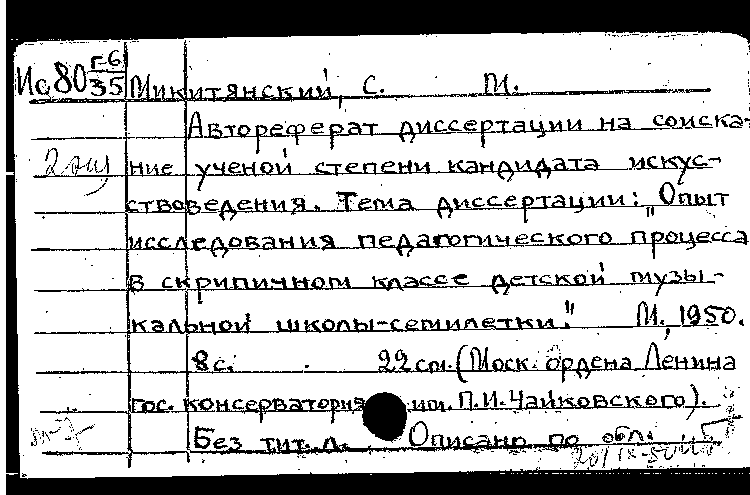 Ис80 г-6/35 Микитянский, С. М.
Автореферат диссертации на соиска-
2 экз ние ученой степени кандидата искус-
ствоведения. Тема диссертации: „Опыт
исследования педагогического процесса
в скрипичном классе детской музы-
кальной школы-семилетки." М., 1950.
8 с. 22 см. (Моск. ордена Ленина
гос. консерватория им. П.И. Чайковского).
Без тит. л. Описано по обл.